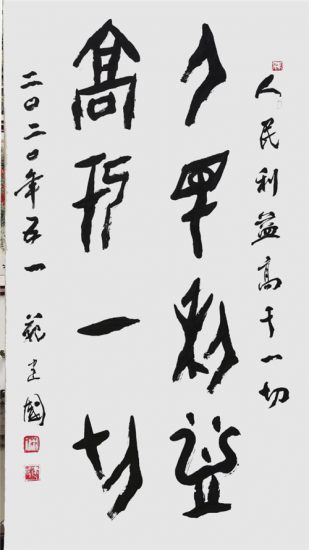 人民利益高于一切
人民利益
高于一切
二〇二〇年五一 范建国